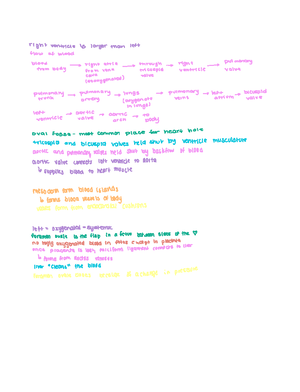 right ventricle is larger than left
flow of blood
blood from body → right atria from vena cava (deoxygenated) → through tricuspid valve → right ventricle → pulmonary valve
pulmonary trunk → pulmonary artery → lungs (oxygenate in lungs) → pulmonary veins → left atrium → bicuspid valve
left ventricle → aortic valve → aortic arch → to body
oval fossa - most common place for heart hole
tricuspid and bicuspid valves held shut by ventricle musculature
aortic and pulmonary valves held shut by backflow of blood
aortic valve connects left ventricle to aorta
↳ supplies blood to heart muscle
mesoderm form blood islands
↳ forms blood vessels of body
left = oxygenated = systemic
foramen ovale is the flap in a fetus between atria of the ♡
no fully oxygenated blood in fetus except in placenta
once
↳ forms from ductus venosus
liver "cleans" the blood